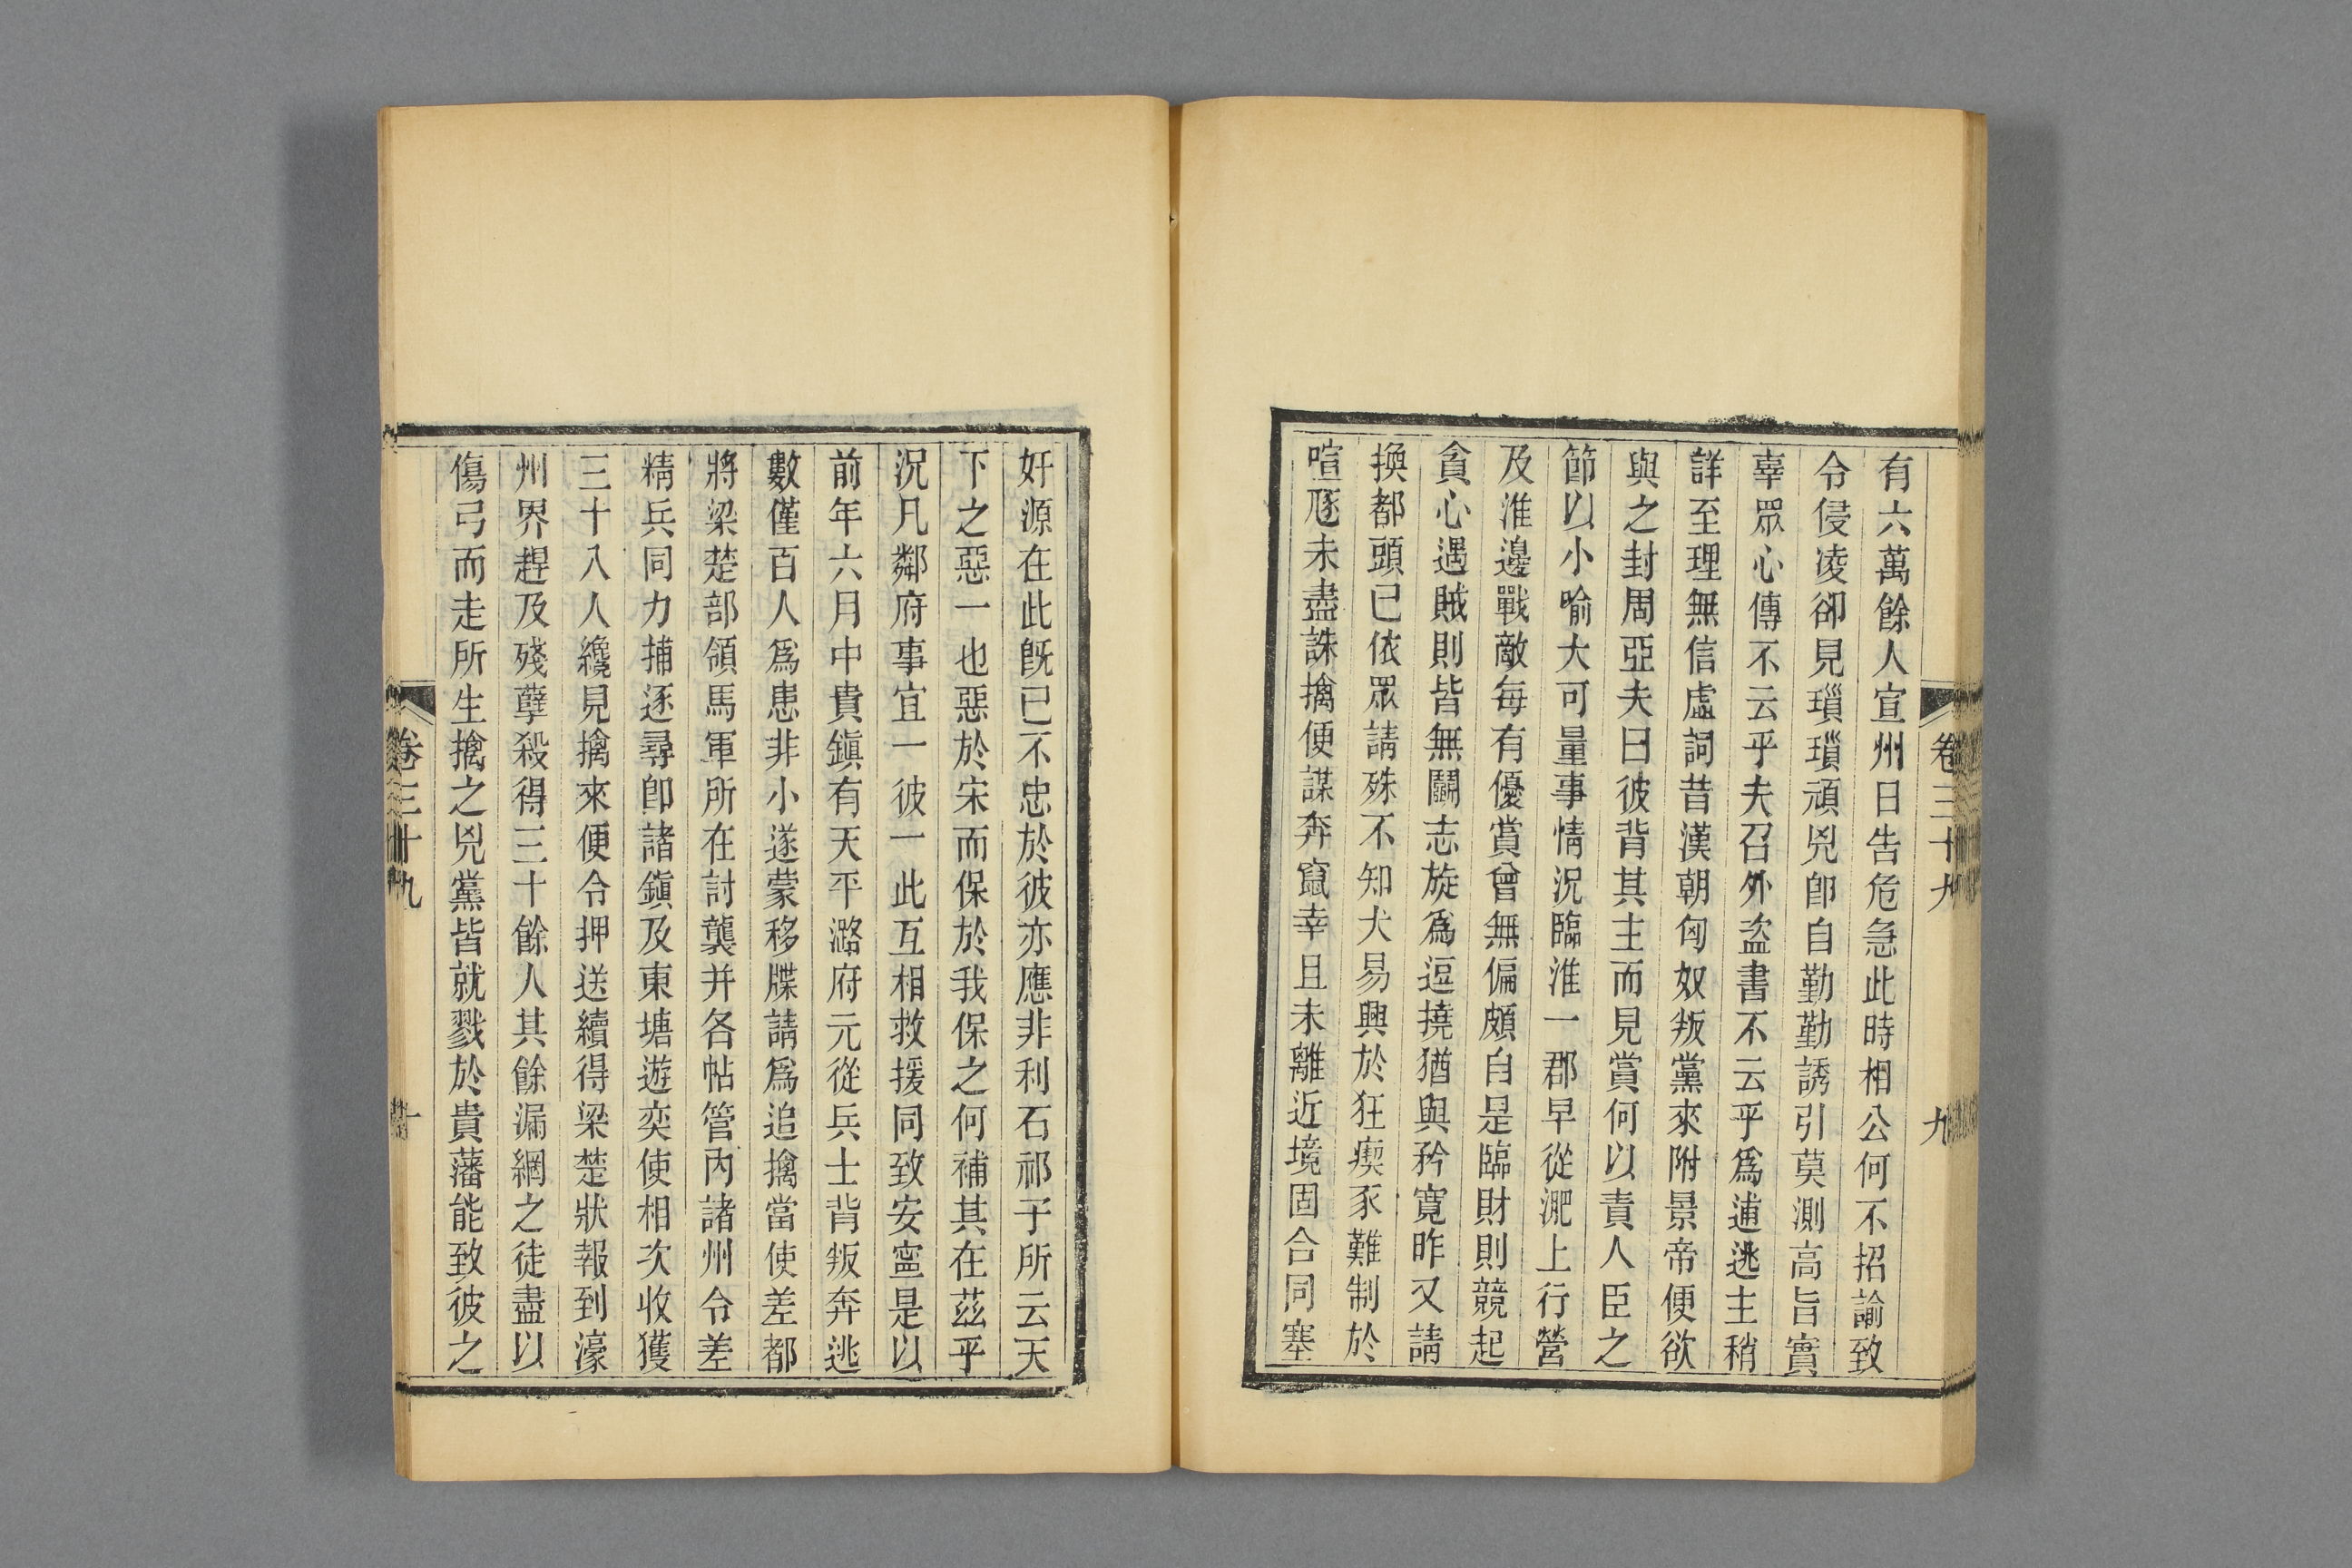 卷三十九
九
有六萬餘人宣州日告危急此時相公何不招諭致
令侵凌卻見瑣瑣頑兇卽自勤勤誘引莫測高旨實
辜眾心傳不云乎夫召外盜書不云乎爲逋逃主稍
詳至理無信虛詞昔漢朝匈奴叛黨來附景帝便欲
與之封周亞夫曰彼背其主而見賞何以責人臣之
節以小喻大可量事情況臨淮一郡早從淝上行營
及淮邊戰敵每有優賞曾無偏頗自是臨財則競起
貪心遇賊則皆無鬬志旋爲逗撓猶與矜寬昨又請
換都頭已依眾請殊不知犬易興於狂瘈豕難制於
喧豗未盡誅擒便謀奔竄幸且未離近境固合同塞
奸源在此旣已不忠於彼亦應非利石祁子所云天
下之惡一也惡於宋而保於我保之何補其在茲乎
況凡鄰府事宜一彼一此互相救援同致安寍是以
前年六月中貴鎭有天平潞府元從兵士背叛奔逃
數僅百人爲患非小遂蒙移牒請爲追擒當使差都
將梁楚部領馬軍所在討襲并各帖管內諸州令差
精兵同力捕逐尋卽諸鎭及東塘遊奕使相次收獲
三十八人纔見擒來便令押送續得梁楚狀報到濠
州界趕及殘孽殺得三十餘人其餘漏網之徒盡以
傷弓而走所生擒之兇黨皆就戮於貴藩能致彼之
卷三十九